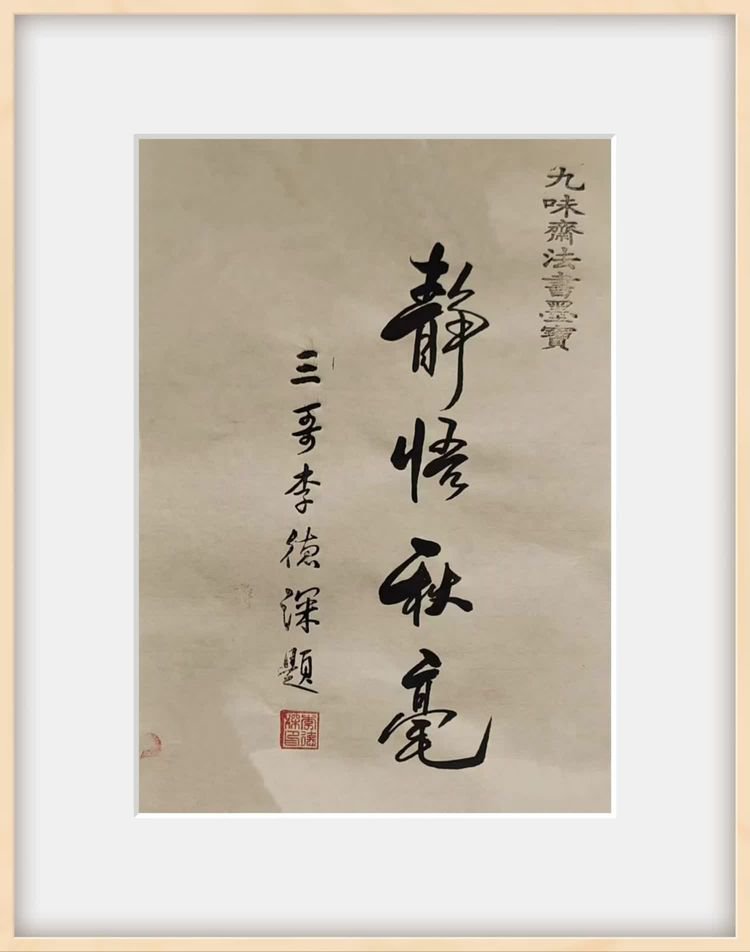 九味齋法書墨寶
靜悟秋毫
三哥李德深題